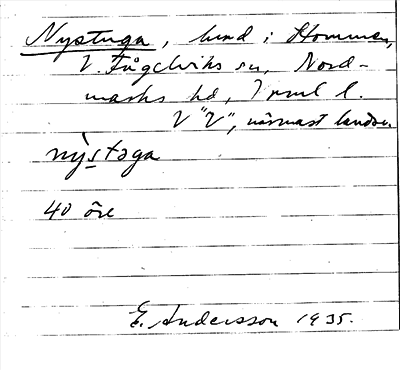 Nystuga, hmd i Hommen,
V. Fågelviks sn, Nord-
marks hd, Vrml l.
V "V", närmast landsv.
nỳstəga
40 öre
E. Andersson 1935.